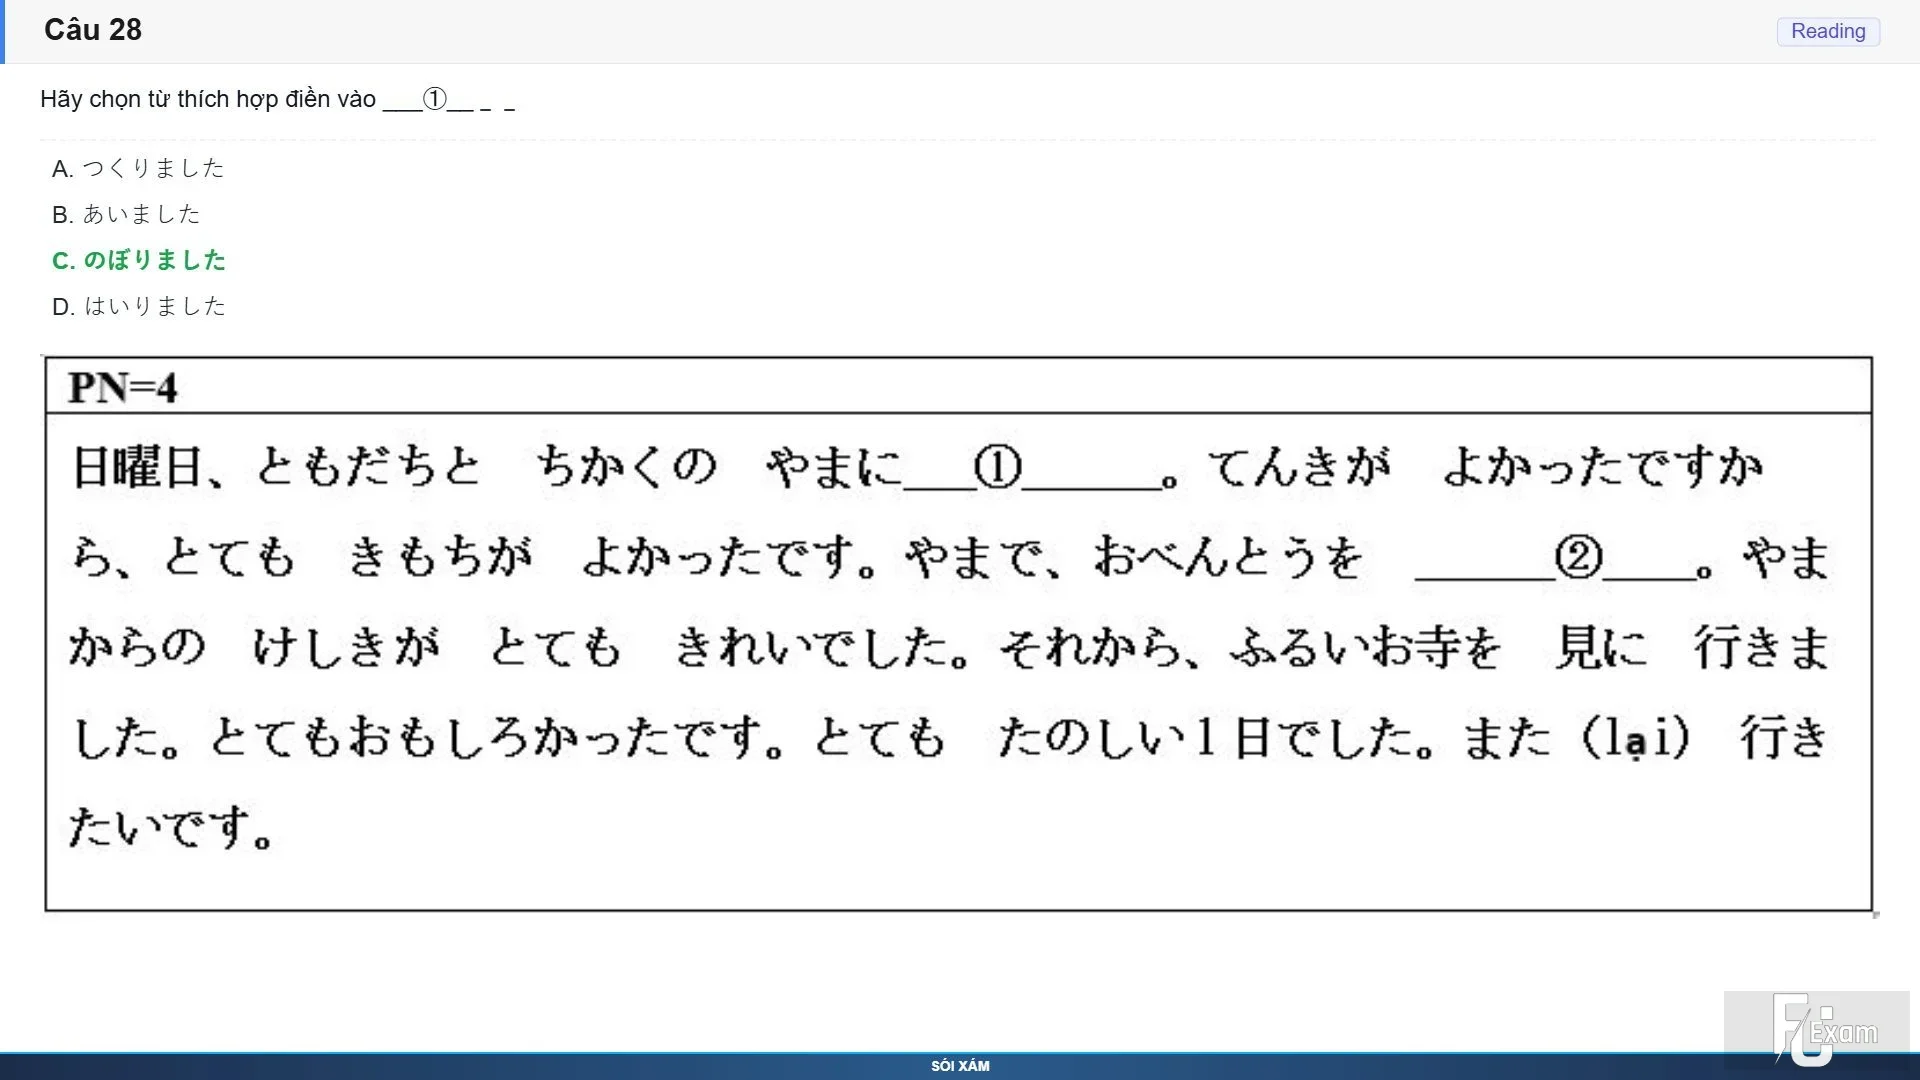 Câu 28
Reading
Hãy chọn từ thích hợp điền vào ___①__ _ _
A. つくりました
B. あいました
C. のぼりました
D. はいりました
PN=4
日曜日、ともだちと ちかくの やまに___①______。てんきが よかったですか
ら、とても きもちが よかったです。やまで、おべんとうを ______②____。やま
からの けしきが とても きれいでした。それから、ふるいお寺を 見に 行きま
した。とてもおもしろかったです。とても たのしい1日でした。また（lại） 行き
たいです。
FU Exam
SÓI XÁM